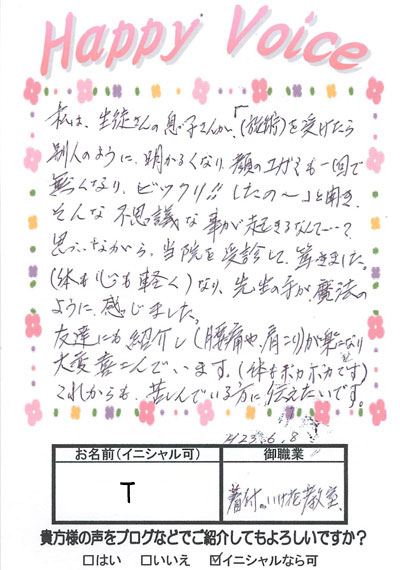 Happy Voice
私は、生徒さんの息子さんが、「(施術)を受けたら
別人のように、明かるくなり、顔のユガミも一回で
無くなり、ビックリ!!したの〜」と聞き、
そんな不思議な事が起きるなんて…?
思いながら、当院を受診して、驚きました。
(体も心も軽く)なり、先生の手が、魔法の
ように、感じました。
友達にも紹介し(腰痛や、肩こり)が楽になり
大変喜こんでいます。(体もポカポカです)
これからも、苦しんでいる方に伝えたいです。
23.6.8
お名前(イニシャル可)
御職業
T
着付、いけ花教室
貴方様の声をブログなどでご紹介してもよろしいですか?
□はい □いいえ ☑イニシャルなら可